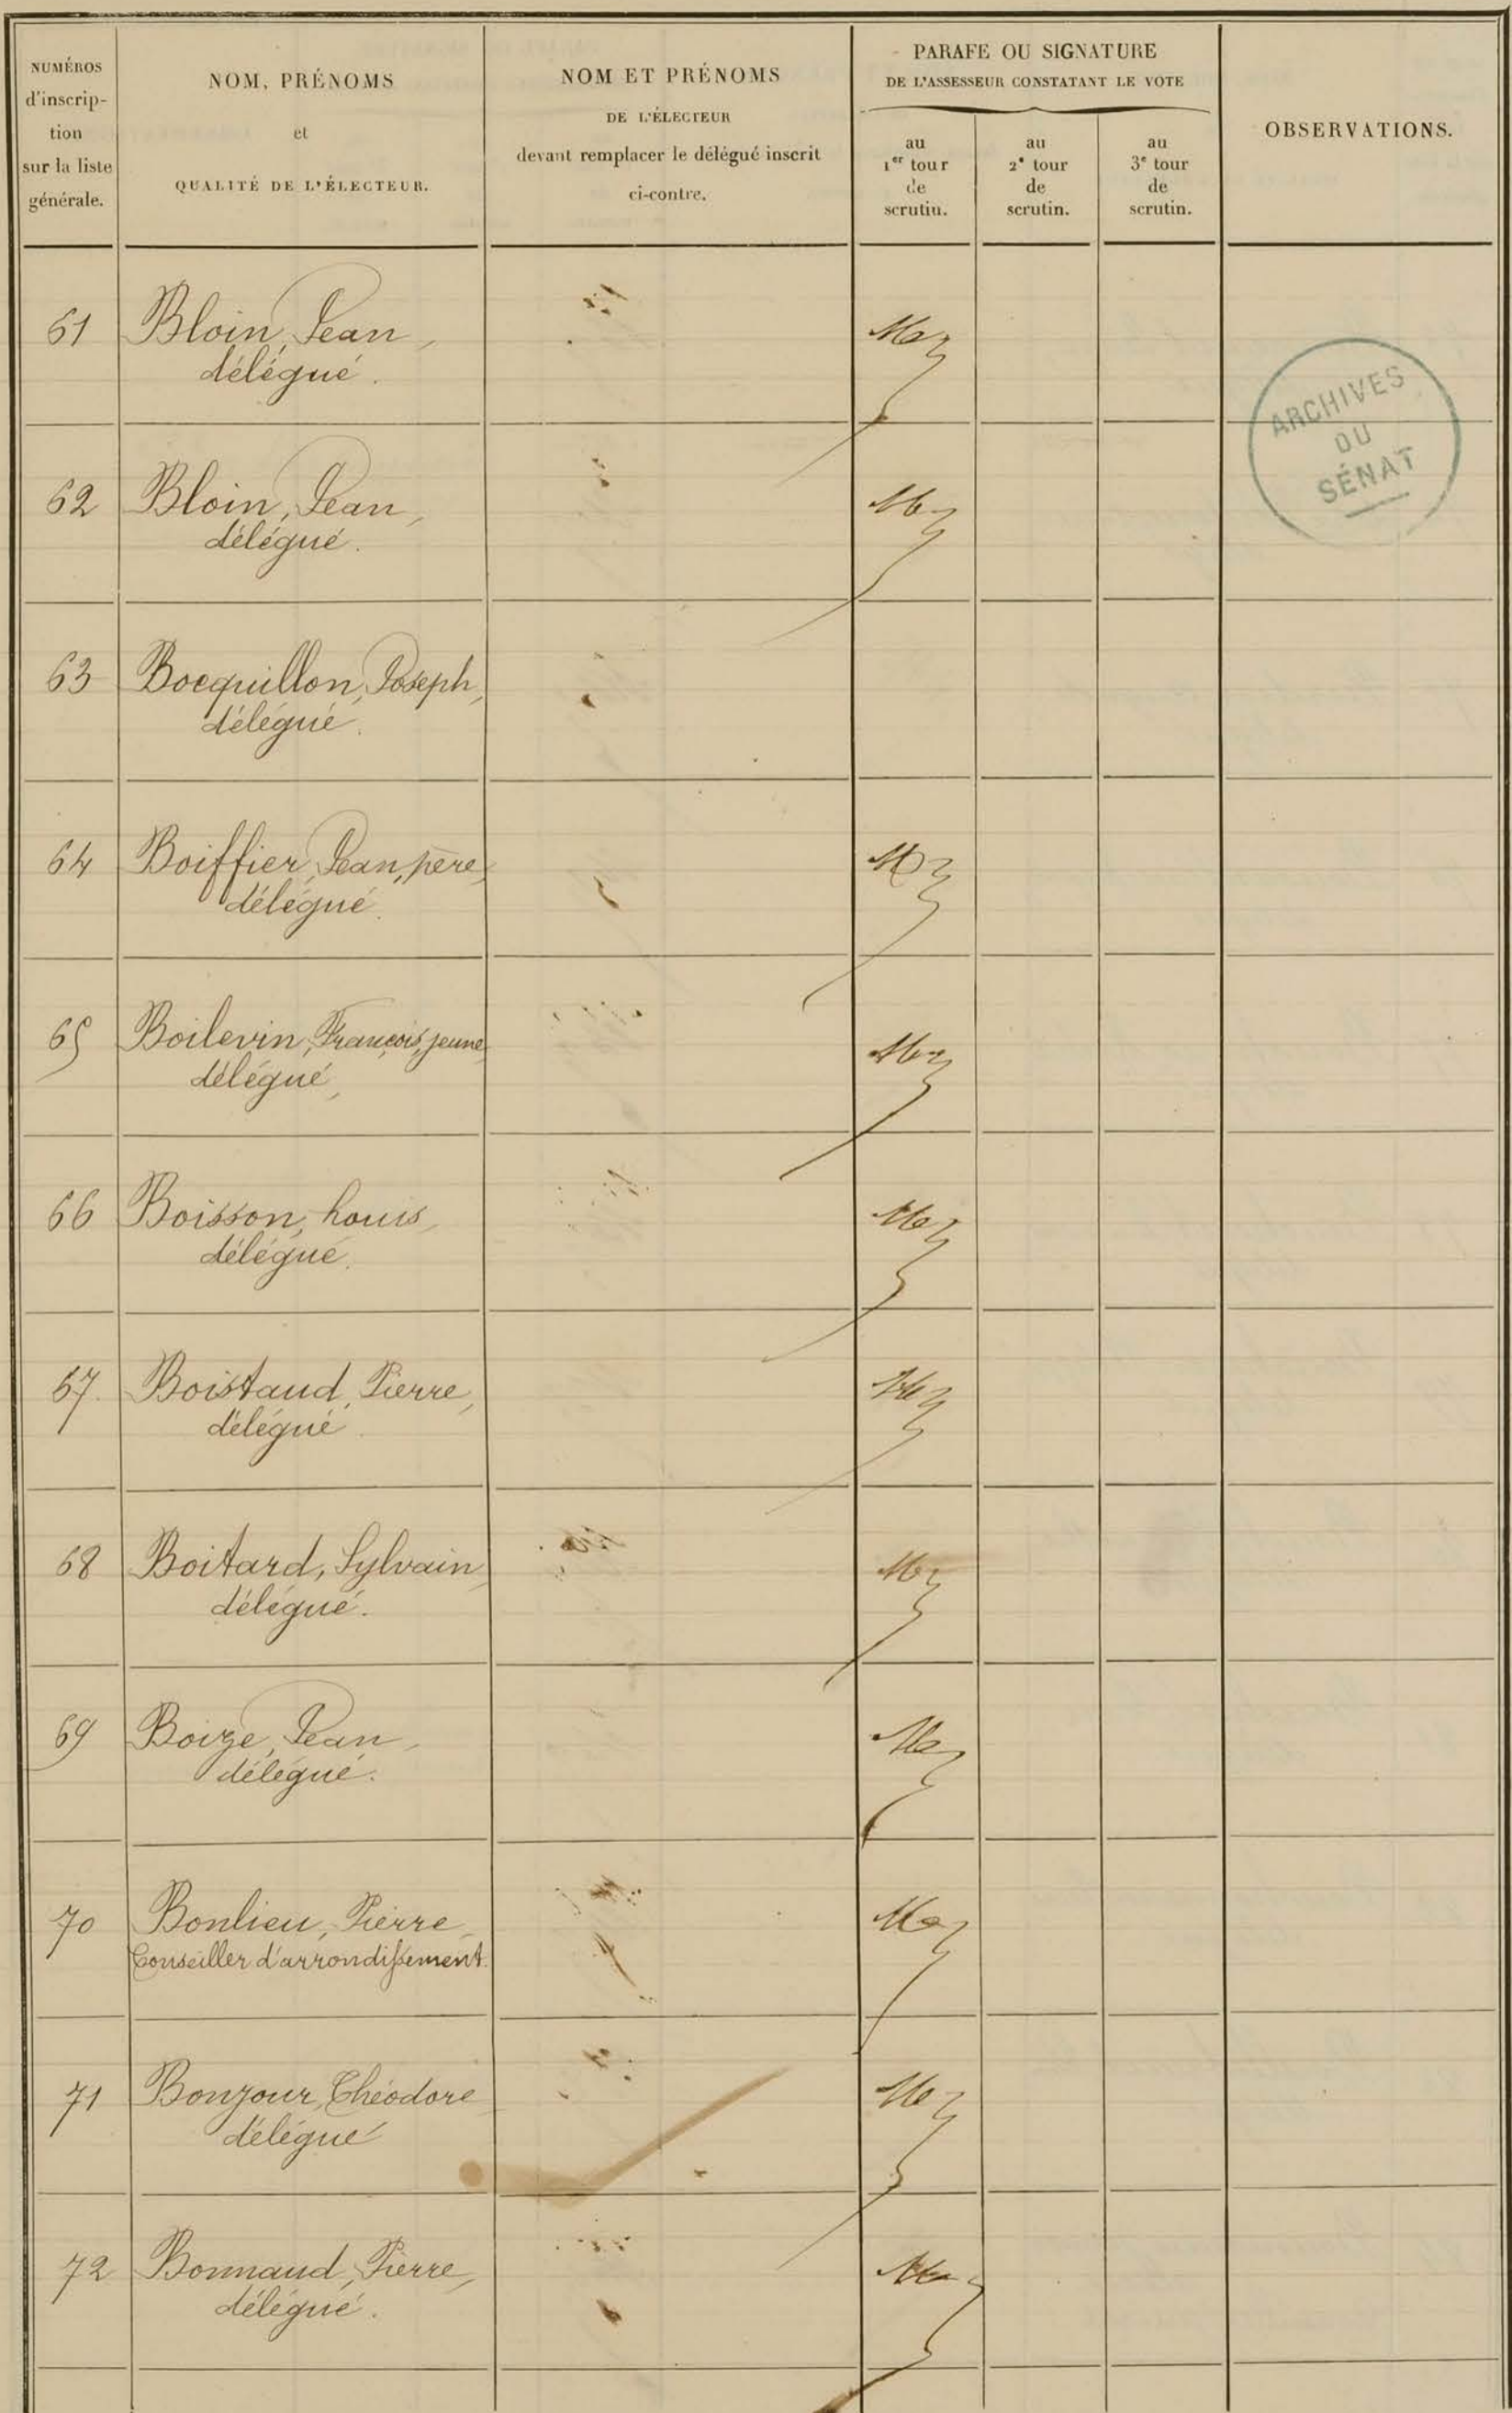 NUMÉROS
d'inscrip-
tion
sur la liste
générale.
NOM, PRÉNOMS
et
QUALITÉ DE L'ÉLECTEUR.
NOM ET PRÉNOMS
DE L'ÉLECTEUR
devant remplacer le délégué inscrit
ci-contre.
PARAFE OU SIGNATURE
DE L'ASSESSEUR CONSTATANT LE VOTE
au
1er tour
de
scrutin.
au
2e tour
de
scrutin.
au
3e tour
de
scrutin.
OBSERVATIONS.
61 Bloin, Jean,
délégué.
ARCHIVES
DU
SÉNAT
62 Bloin, Jean,
délégué.
63 Bocquillon, Joseph,
délégué.
64 Boiffier, Jean, père,
délégué.
65 Boilevin, François, jeune
délégué,
66 Boisson, Louis,
délégué.
67. Boistaud, Pierre,
délégué.
68 Boitard, Sylvain,
délégué.
69 Boize, Jean,
délégué.
70 Bonlieu, Pierre,
Conseiller d'arrondissement.
71 Bonjour, Théodore
délégué
72 Bonnaud, Pierre,
délégué.